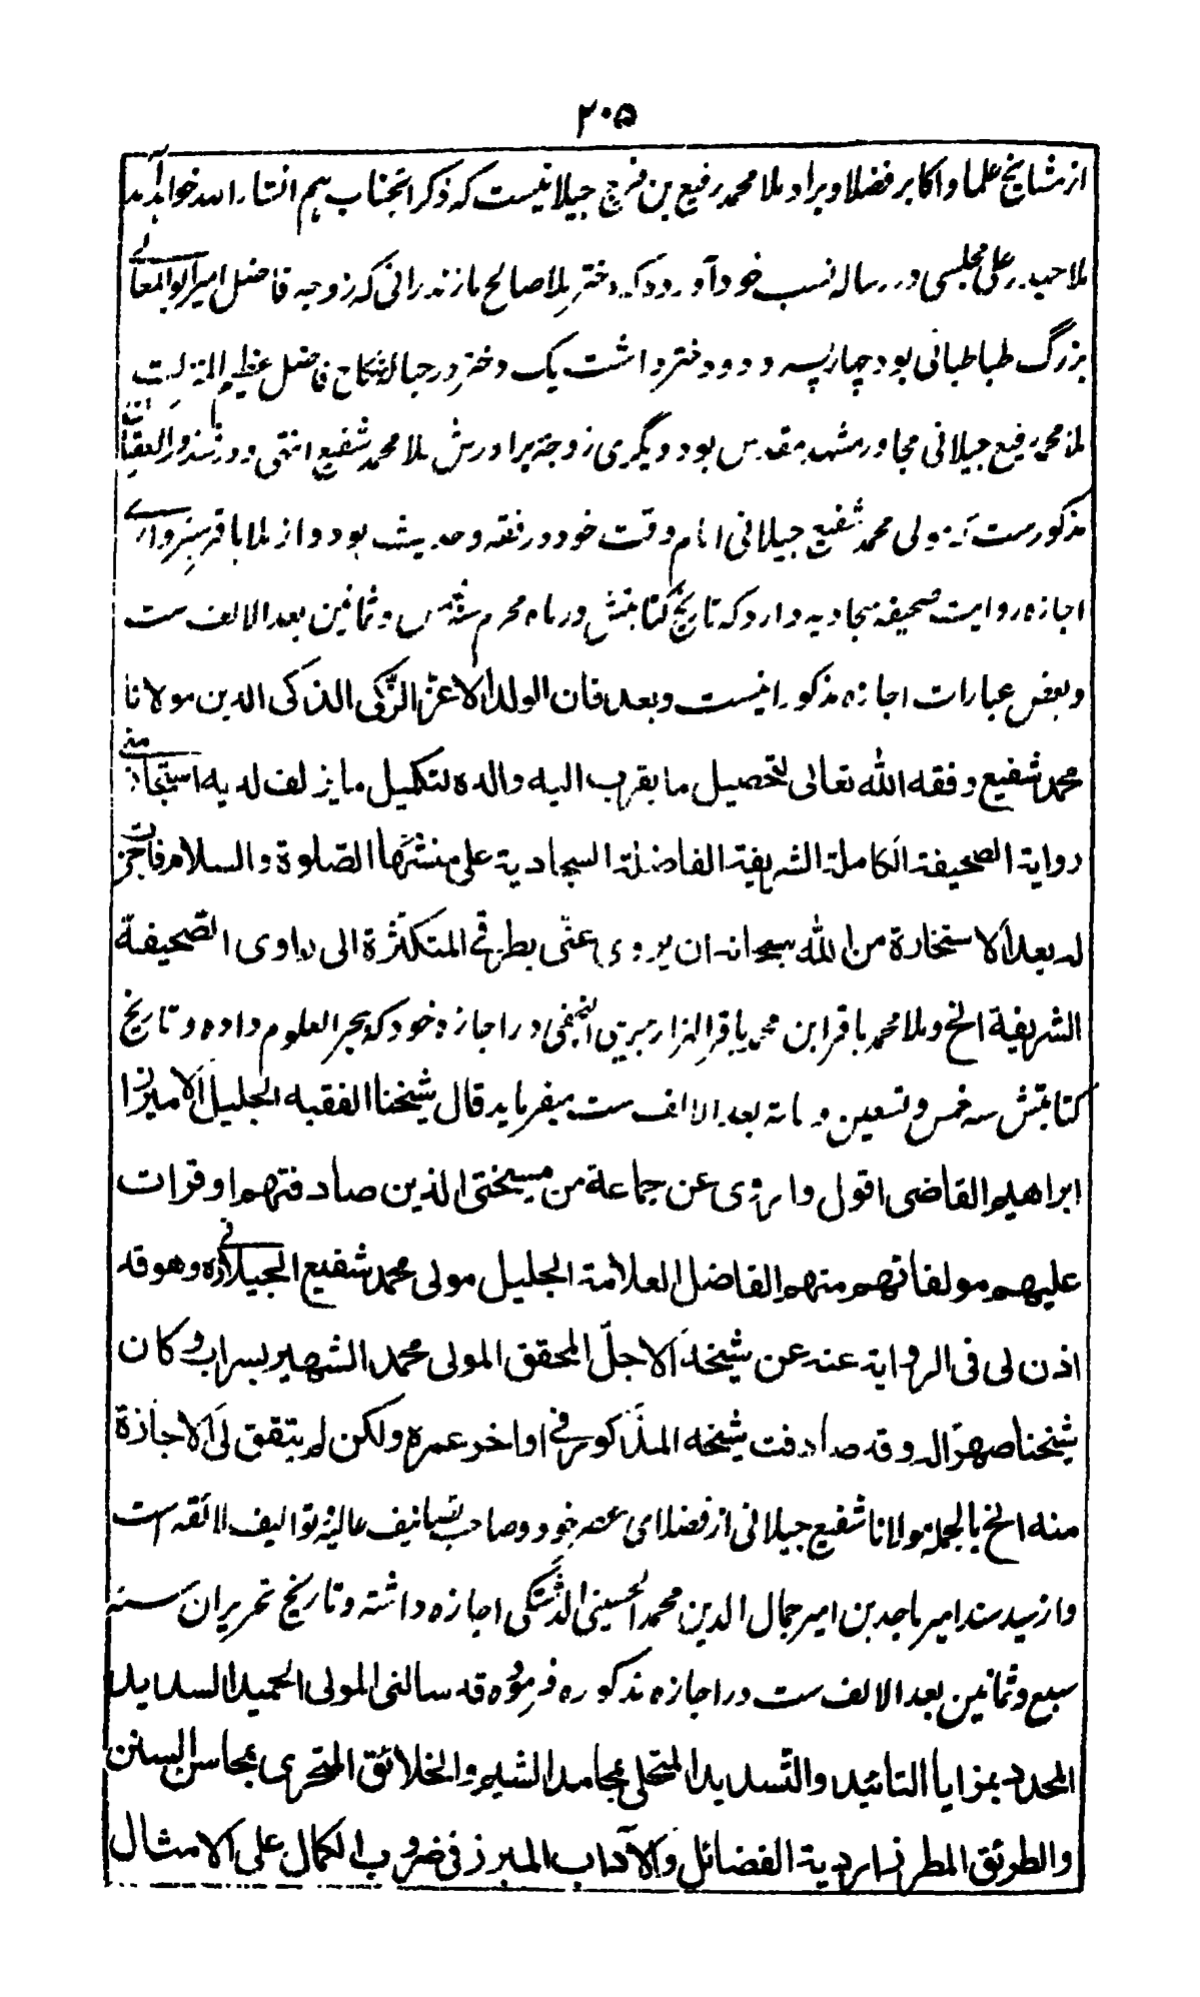 ۲۰۵
از مشایخ علما و اکابر فضلا و برادر ملا محمد رفیع بن فرج جیلانیست که ذکر آنجناب هم انشاء الله خواهد آمد
ملا حیدر علی مجلسی در رساله نسب خود آورده که دختر ملا صالح مازندرانی که زوجه فاضل امیر ابو المعالی
بزرگ طباطبائی بود چهار پسر و دو دختر داشت یک دختر در حباله نکاح فاضل عظیم المنزلت
ملا محمد رفیع جیلانی مجاور مشهد مقدس بود و دیگری زوجه برادرش ملا محمد شفیع انتهی و در شذور العقیان
مذکورست که مولی محمد شفیع جیلانی امام وقت خود در فقه و حدیث بود و از ملا باقر سبزواری
اجازه روایت صحیفه سجادیه دارد که تاریخ کتابتش در ماه محرم سنه خمس و ثمانین بعد الالف ست
و بعض عبارات اجازه مذکوره اینست وبعد فان الولد الاعز الزکی الذکی الدین مولانا
محمد شفیع وفقه الله تعالی لتحصیل ما یقرب الیه والده لتکمیل ما یزلف لدیه استجاز منی
روایة الصحیفة الکاملة الشریفة الفاضلة السجادیة علی منشئها الصلوة والسلام فاجزت
له بعد الاستخارة من الله سبحانه ان یروی عنی بطرقی المتکثرة الی راوی الصحیفة
الشریفة الخ و ملا محمد باقر ابن محمد باقر الهزارجریبی النجفی در اجازه خود که ببحر العلوم داده و تاریخ
کتابتش سنه خمس و تسعین و مائة بعد الالف ست میفرماید قال شیخنا الفقیه الجلیل الامیرزا
ابراهیم القاضی اقول واروی عن جماعة من مشیختی الذین صادفتهم او قرات
علیهم مولفاتهم منهم الفاضل العلامة الجلیل مولی محمد شفیع الجیلانی ره وهو قد
اذن لی فی الروایة عنه عن شیخه الاجل المحقق المولی محمد الشهیر بسراب وکان
شیخنا صهرا له وقد صادفت شیخه المذکور فی اواخر عمره ولکن لم یتفق لی الاجازة
منه الخ بالجمله مولانا شفیع جیلانی از فضلای عصر خود و صاحب تصانیف عالیه و توالیف لائقه است
و از سید سند امیر ماجد بن امیر جمال الدین محمد الحسینی الدشتکی اجازه داشته و تاریخ تحریر آن سنه
سبع و ثمانین بعد الالف ست در اجازه مذکوره فرموده قد سالنی المولی الحمید السدید
المحدد بمزایا التائید والتسدید المتحلی بمحامد الشیم والخلائق المتحری بمحاسن السنن
والطرئق المطرز باردیة الفضائل والآداب المبرز فی ضروب الکمال علی الامثال